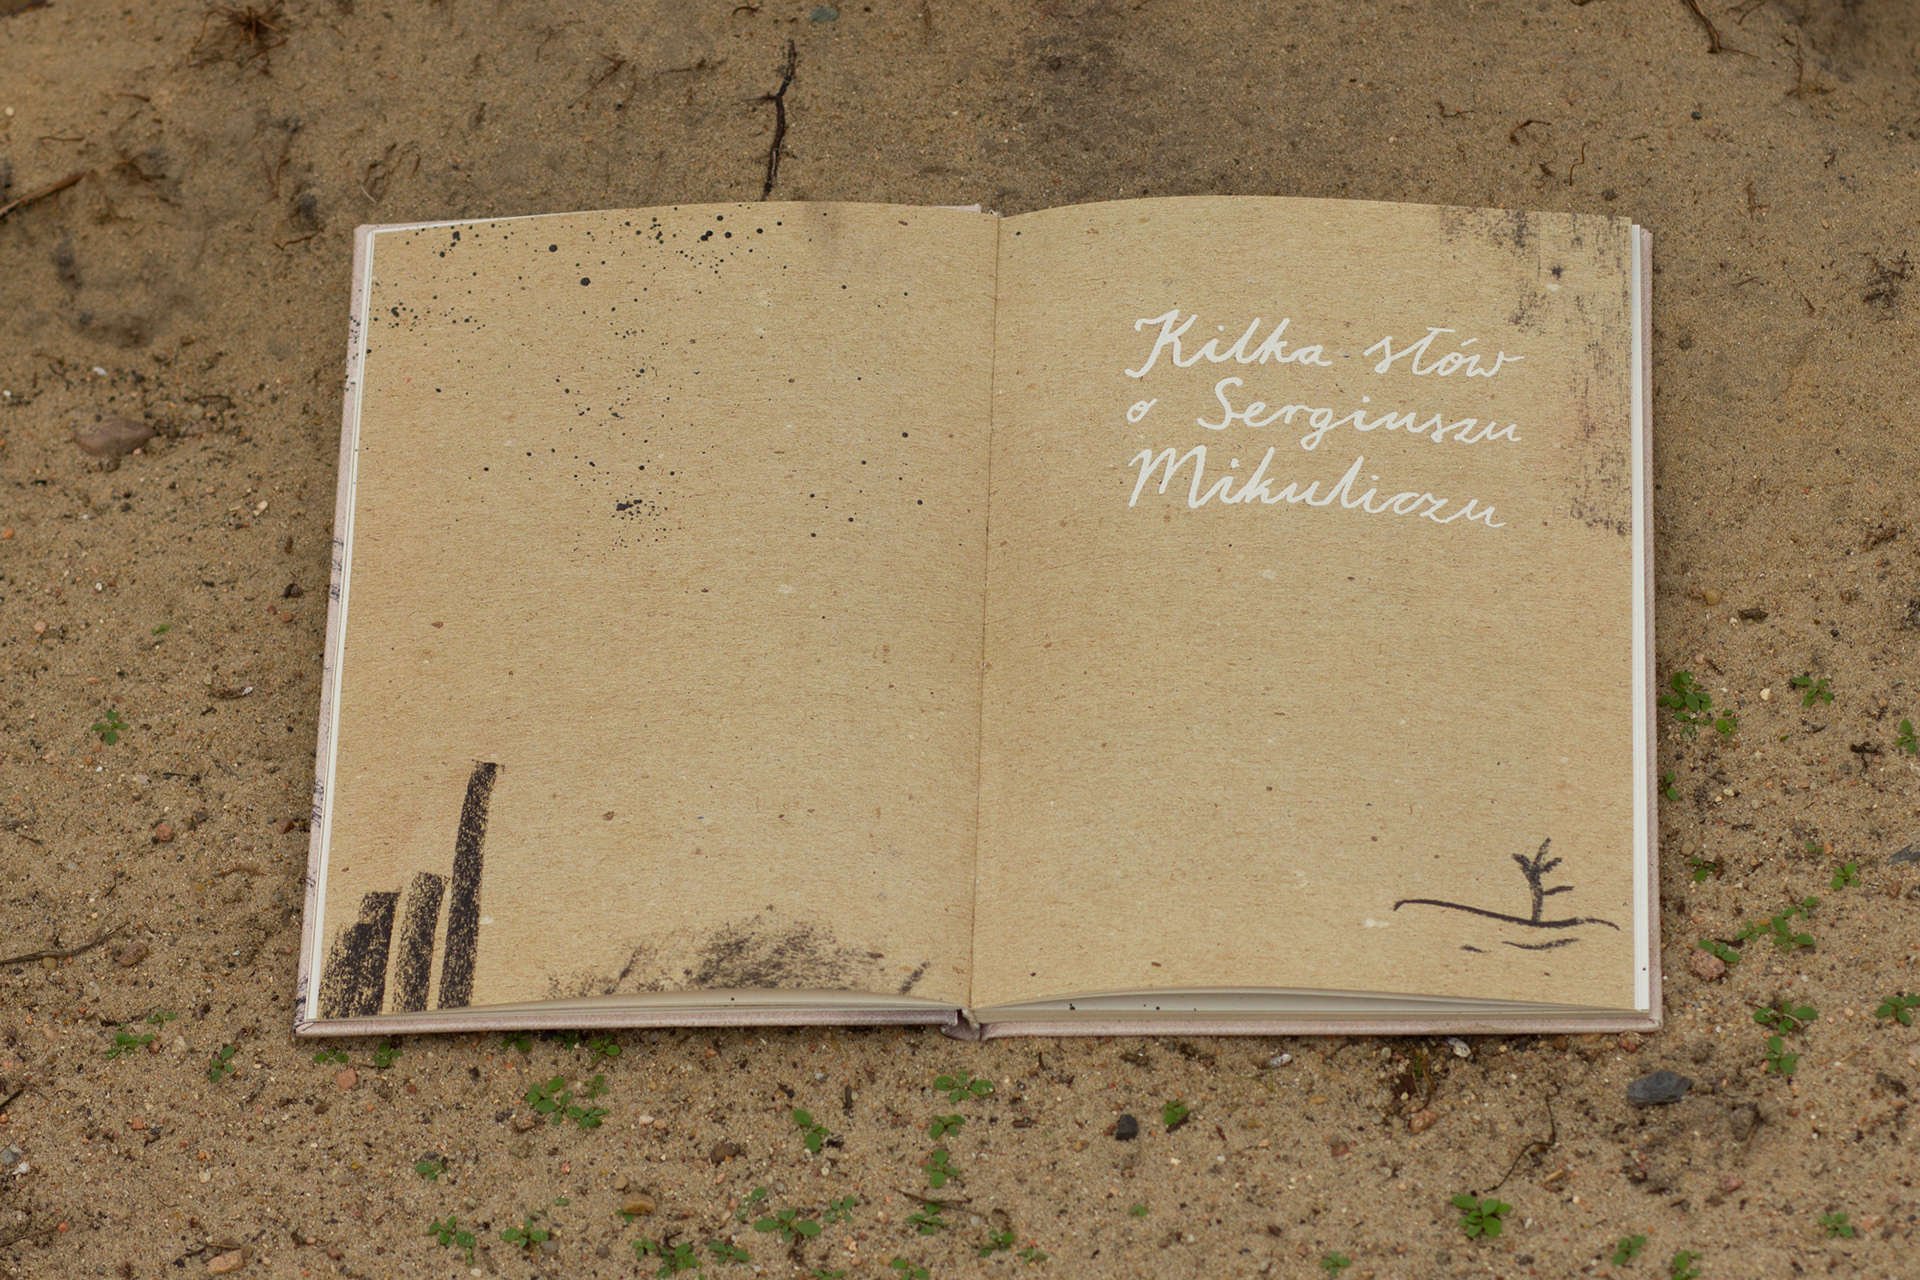 Kilka słów
o Sergiuszu
Mikuliczu